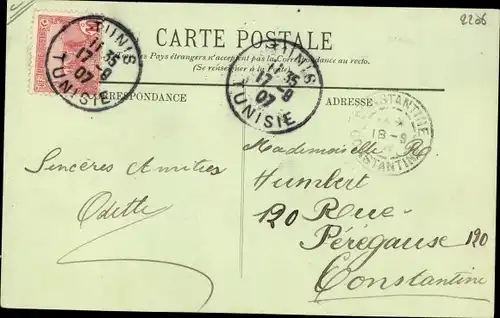 2236
TUNIS
11 35
17-9
07
TUNISIE
TUNIS
11 35
17-9
07
TUNISIE
CARTE POSTALE
les Pays étrangers n'acceptent pas la Correspondance au recto.
(Se renseigner à la Poste)
CORRESPONDANCE
ADRESSE
CONSTANTINE
18-9
CONSTANTINE
Mademoiselle R.
Sincères Amitiés
Odette
Humbert
120 Rue
Pérégause 120
Constantine